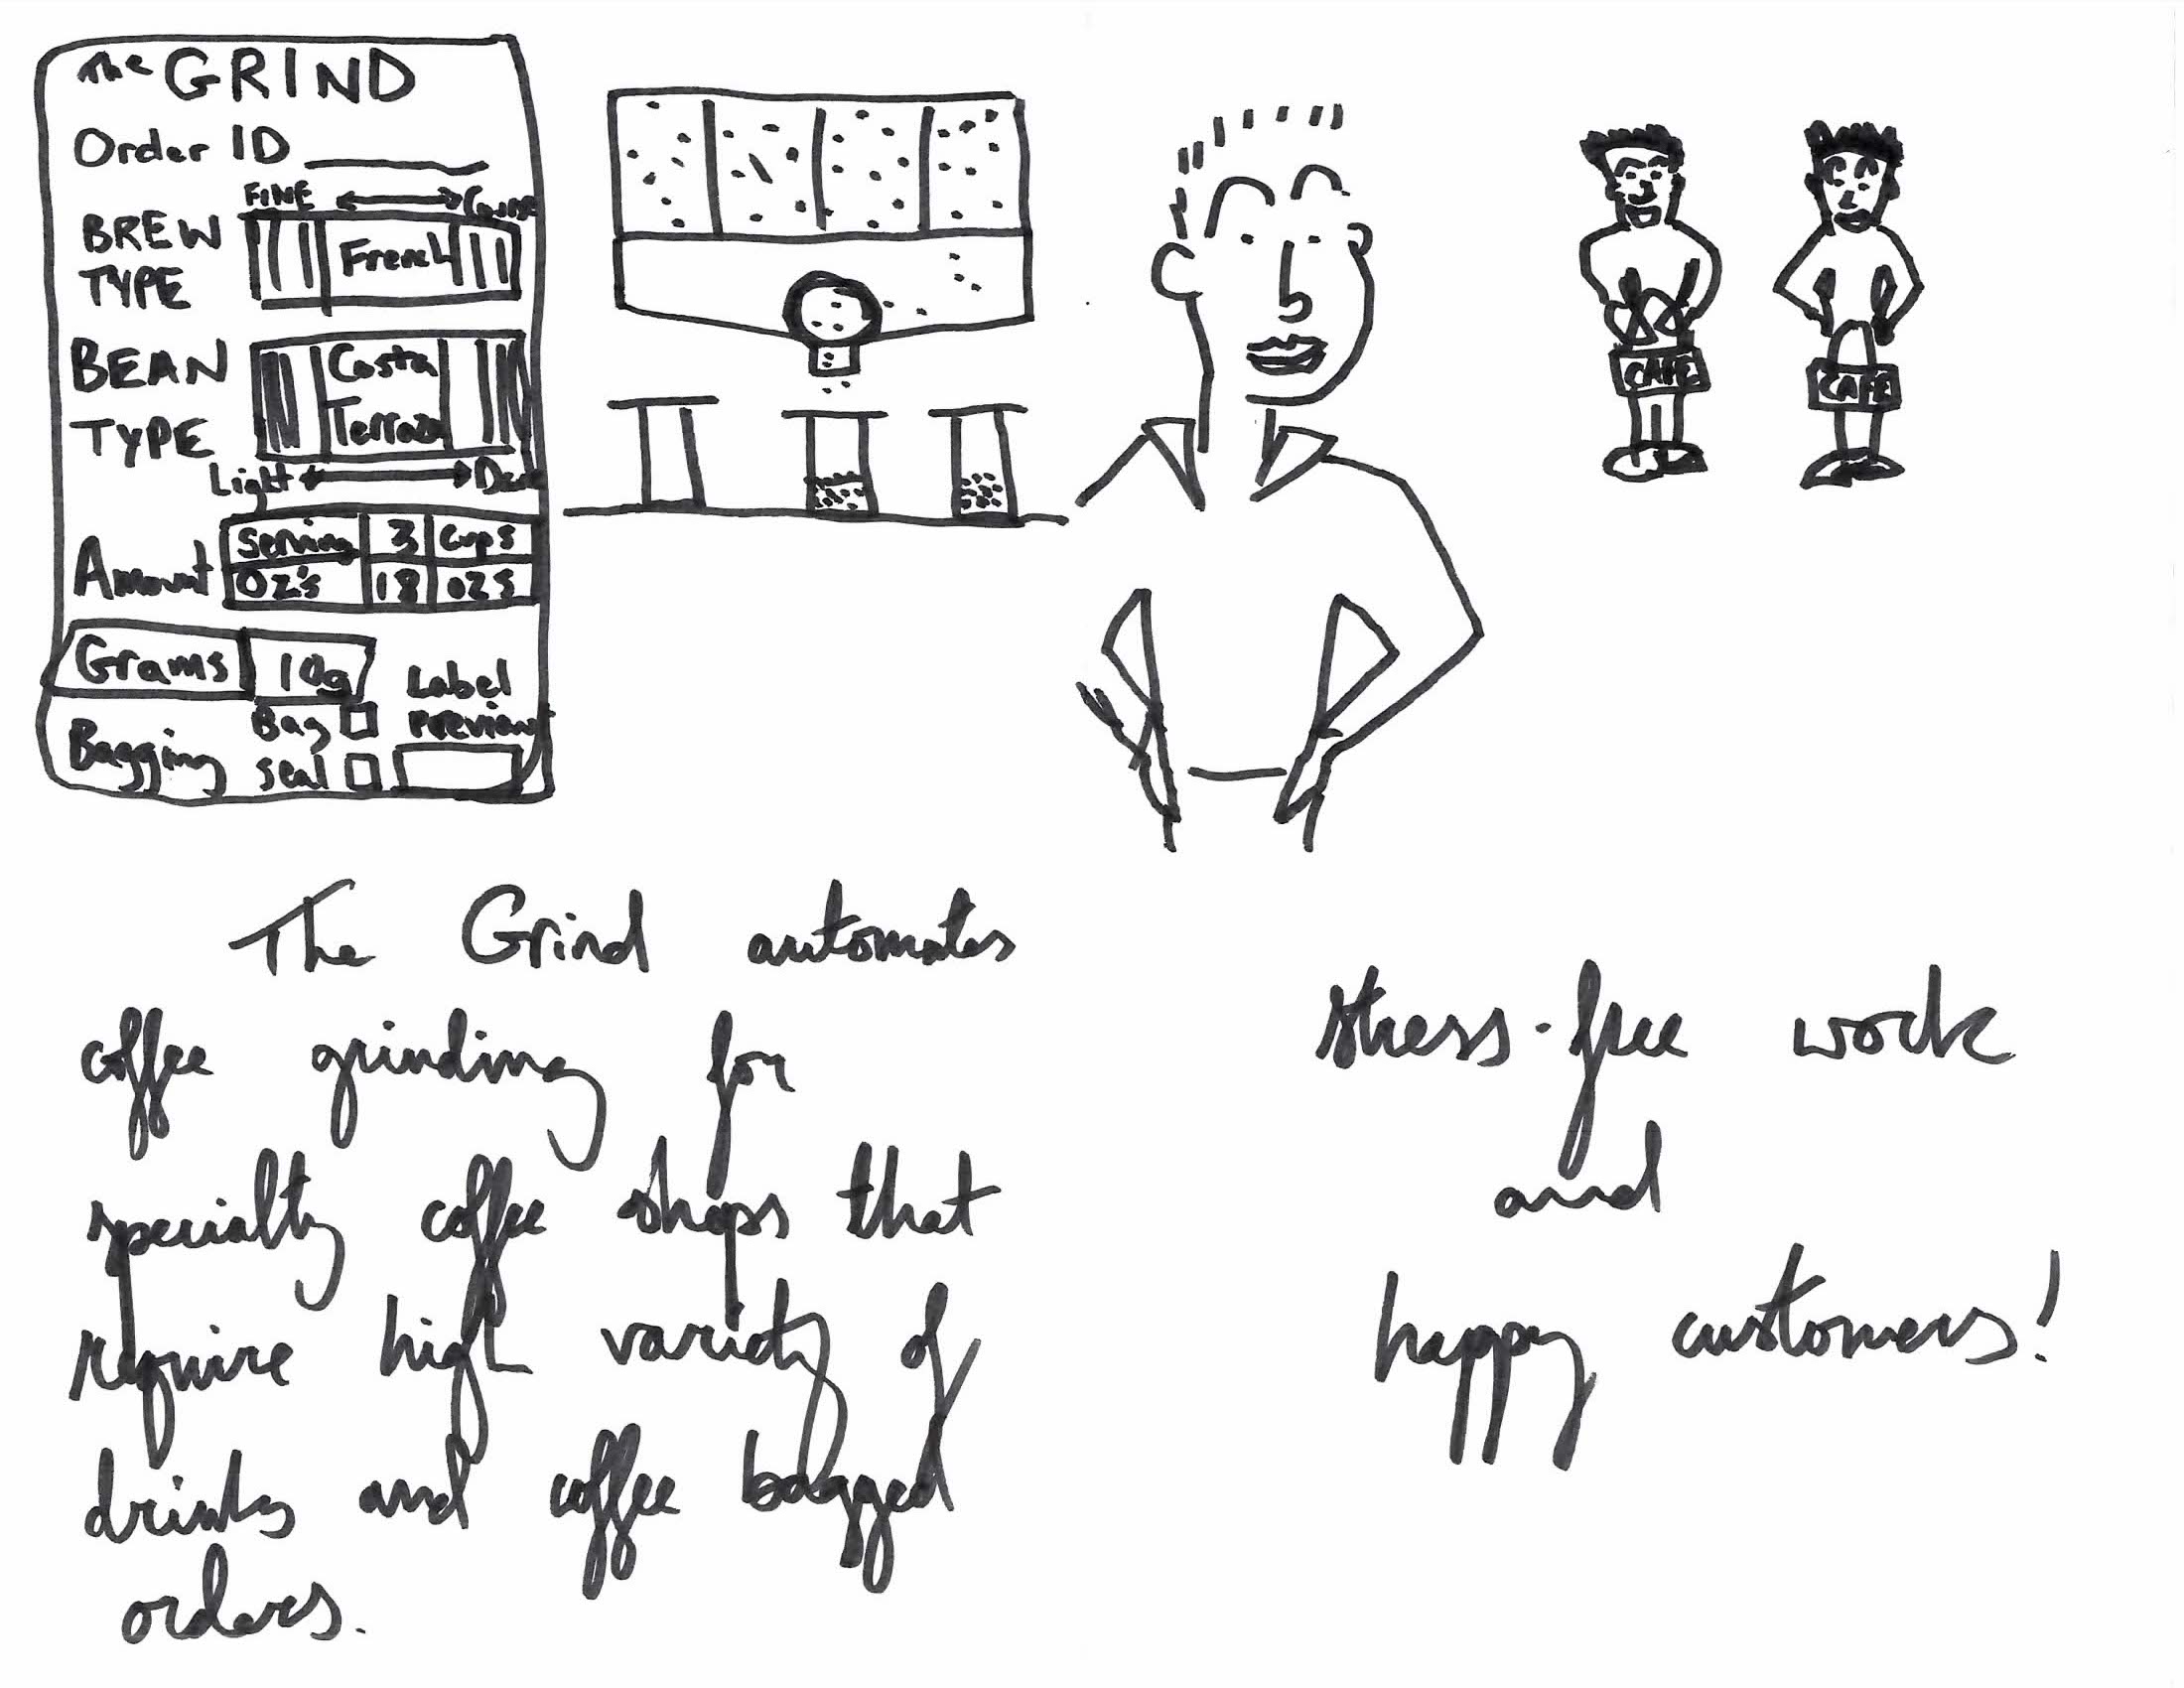 The GRIND
Order ID
FINE Coarse
BREW TYPE
French
BEAN TYPE
Costa Terraza
Light Dark
Amount
Serving 3 Cups
Oz's 18 ozs
Grams 10g
Bagging
Bag
Seal
Label Preview
CAFE
CAFE
The Grind automates
coffee grinding for
specialty coffee shops that
require high variety of
drinks and coffee bagged
orders.
stress-free work
and
happy customers!